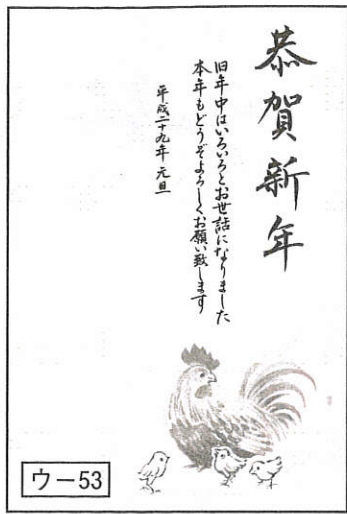 恭賀新年
旧年中はいろいろとお世話になりました
本年もどうぞよろしくお願い致します
平成二十九年 元旦
ウー53